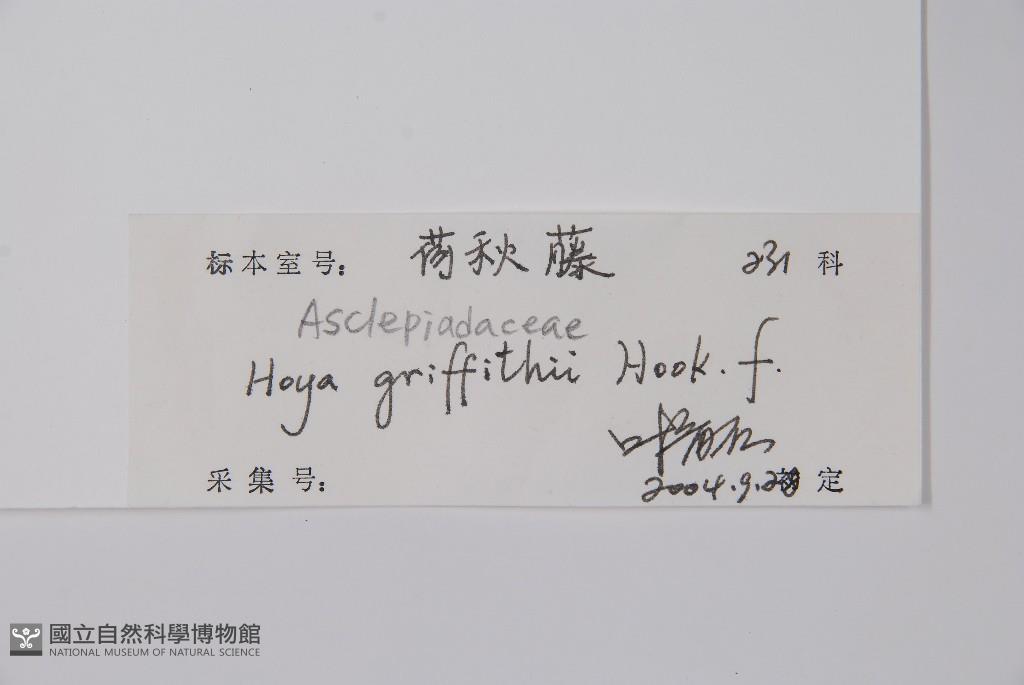 标本室号： 荷秋藤 231 科
Asclepiadaceae
Hoya griffithii Hook. f.
采集号： 2004.9.28 定
國立自然科學博物館
NATIONAL MUSEUM OF NATURAL SCIENCE